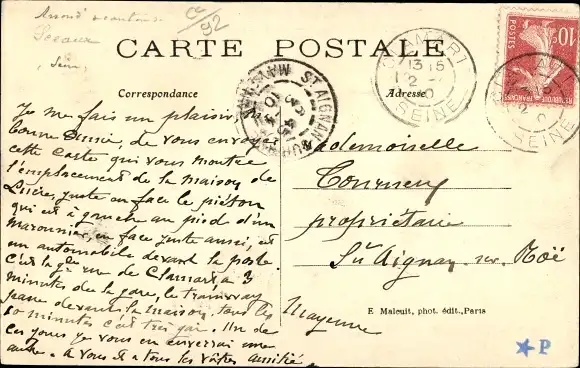 Sceaux
(Seine)
CARTE POSTALE
Correspondance
Adresse
CLAMART
13 15
SEINE
ST AIGNAN
10 POSTES
Je me fais un plaisir, ma
bonne de vous envoyer
cette carte qui vous montre
l'emplacement de la maison de
juste en face le piéton
qui est à gauche au pied d'un
maronnier, en face juste aussi, est
un automobile devant la poste
C'est la gde rue de Clamart, à 3
minutes de la gare, le tramway
passe devant la maison, tous les
10 minutes c'est très gai. Un de
ces jours je vous en enverrai une
autre. à vous et à tous les vôtres amitié
Mademoiselle
propriétaire
St Aignan sur Roë
Mayenne
E Malcuit, phot. édit., Paris
P